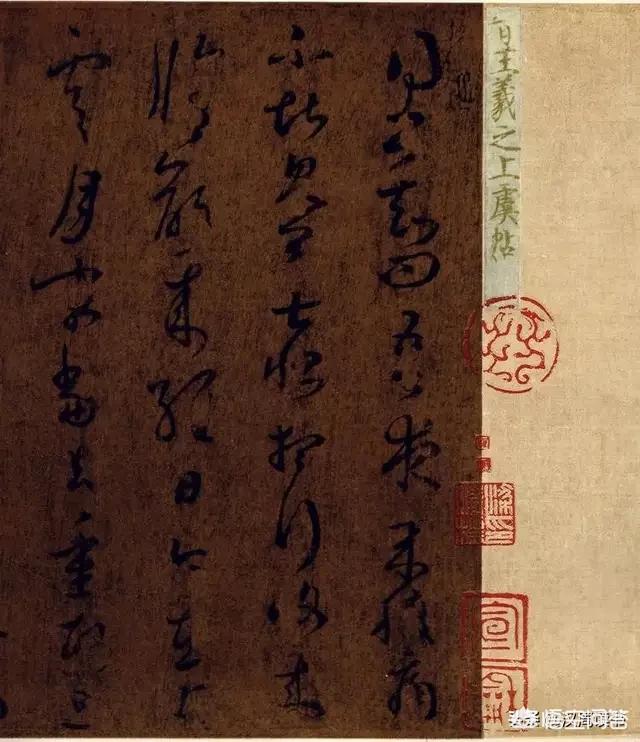 晉王羲之上虞帖
得書知問吾夜来腹痛
不堪見卿甚恨想行復来
脩齡来經日今在上
虞月末當去重熙旦
宣
悟空问答